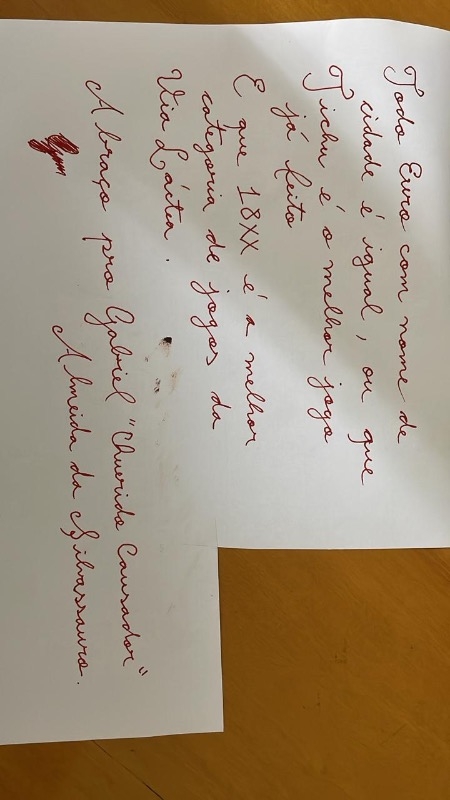 Todo Euro com nome de
cidade é igual, ou que
Tichu é o melhor jogo
já feito
E que 18XX é a melhor
categoria de jogos da
Via Láctea.
Abraço pro Gabriel "Querido Causador"
Almeida da Silvassauro.